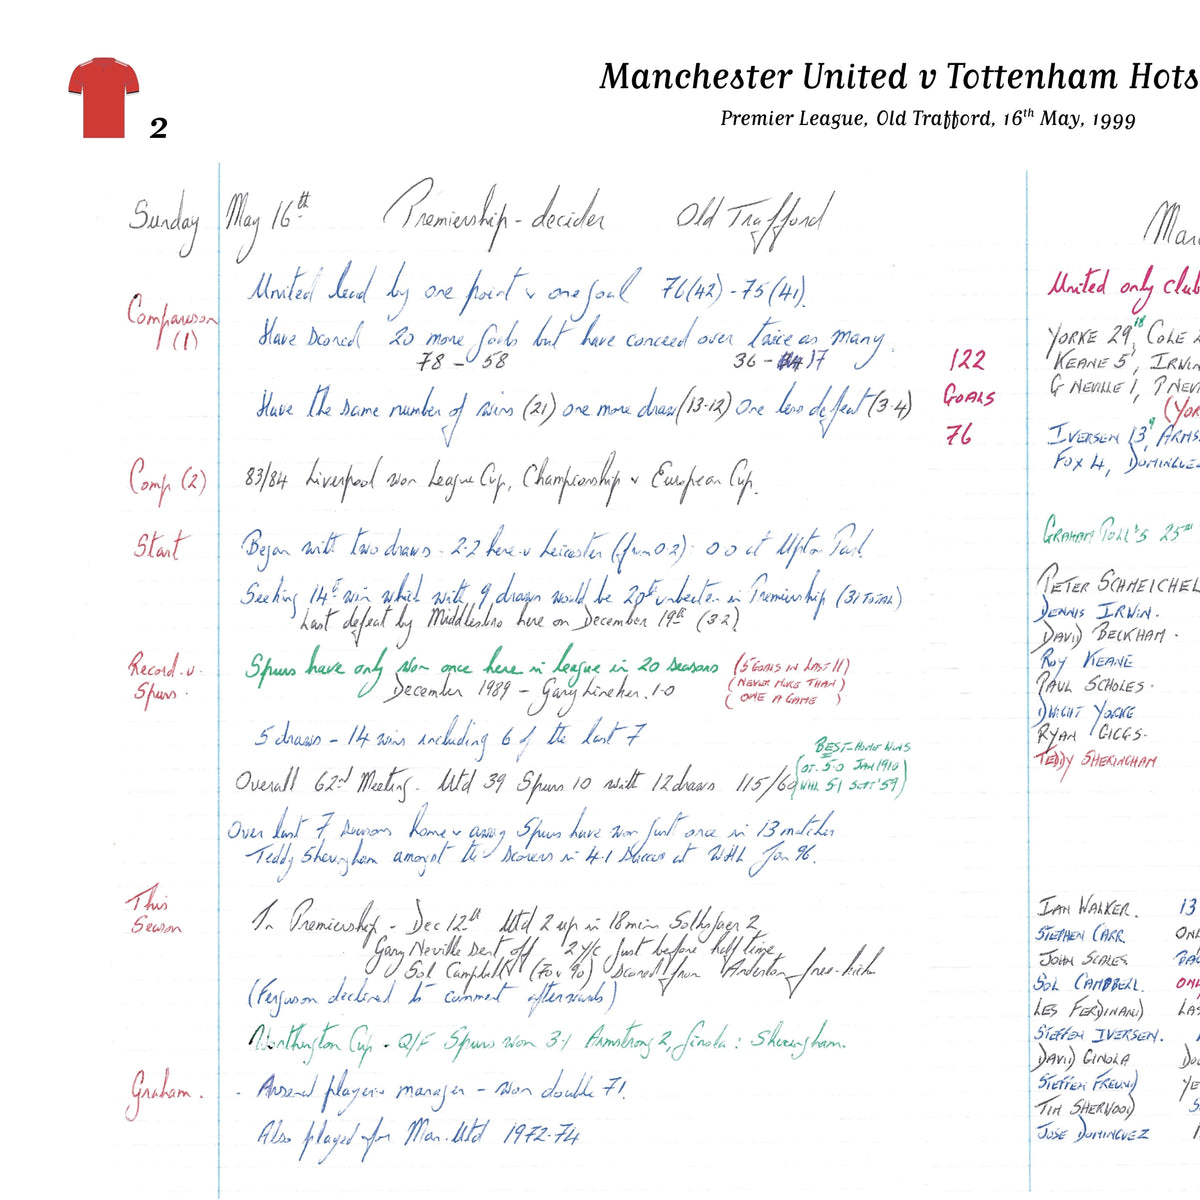 Manchester United v Tottenham Hots
Premier League, Old Trafford, 16th May, 1999
2
Sunday May 16th Premiership - decider Old Trafford
Comparison (1)
United lead by one point v one goal 76(42) - 75(41)
Have scored 20 more goals but have conceed over twice as many
78 - 58 36 - 17
Have the same number of wins (21) one more draw (13-12) One less defeat (3-4)
122
GOALS
76
Comp (2) 83/84 Liverpool won League Cup, Championship v European Cup.
Start Began with two draws - 2-2 here v Leicester (from 0-2): 0 0 at Upton Park
Seeking 14th win which with 9 draws would be 20th unbeaten in Premiership (31 TOTAL)
Last defeat by Middlesbro here on December 19th (3 2)
Record. v. Spurs. Spurs have only won once here in league in 20 seasons (5 GOALS IN LAST 11)
December 1989 - Gary Lineker. 1-0 (NEVER MORE THAN)
(ONE A GAME)
5 draws - 14 wins including 6 of the last 7
BEST-HOME WINS
(OT. 5-0 JAN 1910)
(WHL 5-1 SEPT '59)
Overall 62nd Meeting. Utd 39 Spurs 10 with 12 draws 115/60
Over last 7 seasons home v away Spurs have won just once in 13 matches
Teddy Sheringham amongst the scorers in 4-1 success at WHL Jan 96.
This Season In Premiership - Dec 12th Utd 2 up in 18 mins Solksjaer 2
Gary Neville sent off 2 Y/C just before half time
Sol Campbell (70 v 90) scored from Anderton free-kick
(Ferguson declined to comment afterwards)
Worthington Cup - Q/F Spurs won 3-1 Armstrong 2, Ginola: Sheringham.
Graham. - Arsenal player v manager - won double 71.
Also played for Man. Utd 1972-74
Man
United only club
YORKE 29 18, COLE 2
KEANE 5, IRWIN
G NEVILLE 1, P NEVI
(YOR
IVERSEN 13 9, ARMS
FOX 4, DOMINGUEZ
GRAHAM POLL'S 25th
PETER SCHMEICHEL
DENNIS IRWIN.
DAVID BECKHAM.
ROY KEANE
PAUL SCHOLES.
DWIGHT YORKE
RYAN GIGGS.
TEDDY SHERINGHAM
IAN WALKER. 13
STEPHEN CARR. ONL
JOHN SCALES
SOL CAMPBELL. ONL
LES FERDINAND LAS
STEFFEN IVERSEN.
DAVID GINOLA DOU
STEFFEN FREUND YE
TIM SHERWOOD S
JOSE DOMINGUEZ